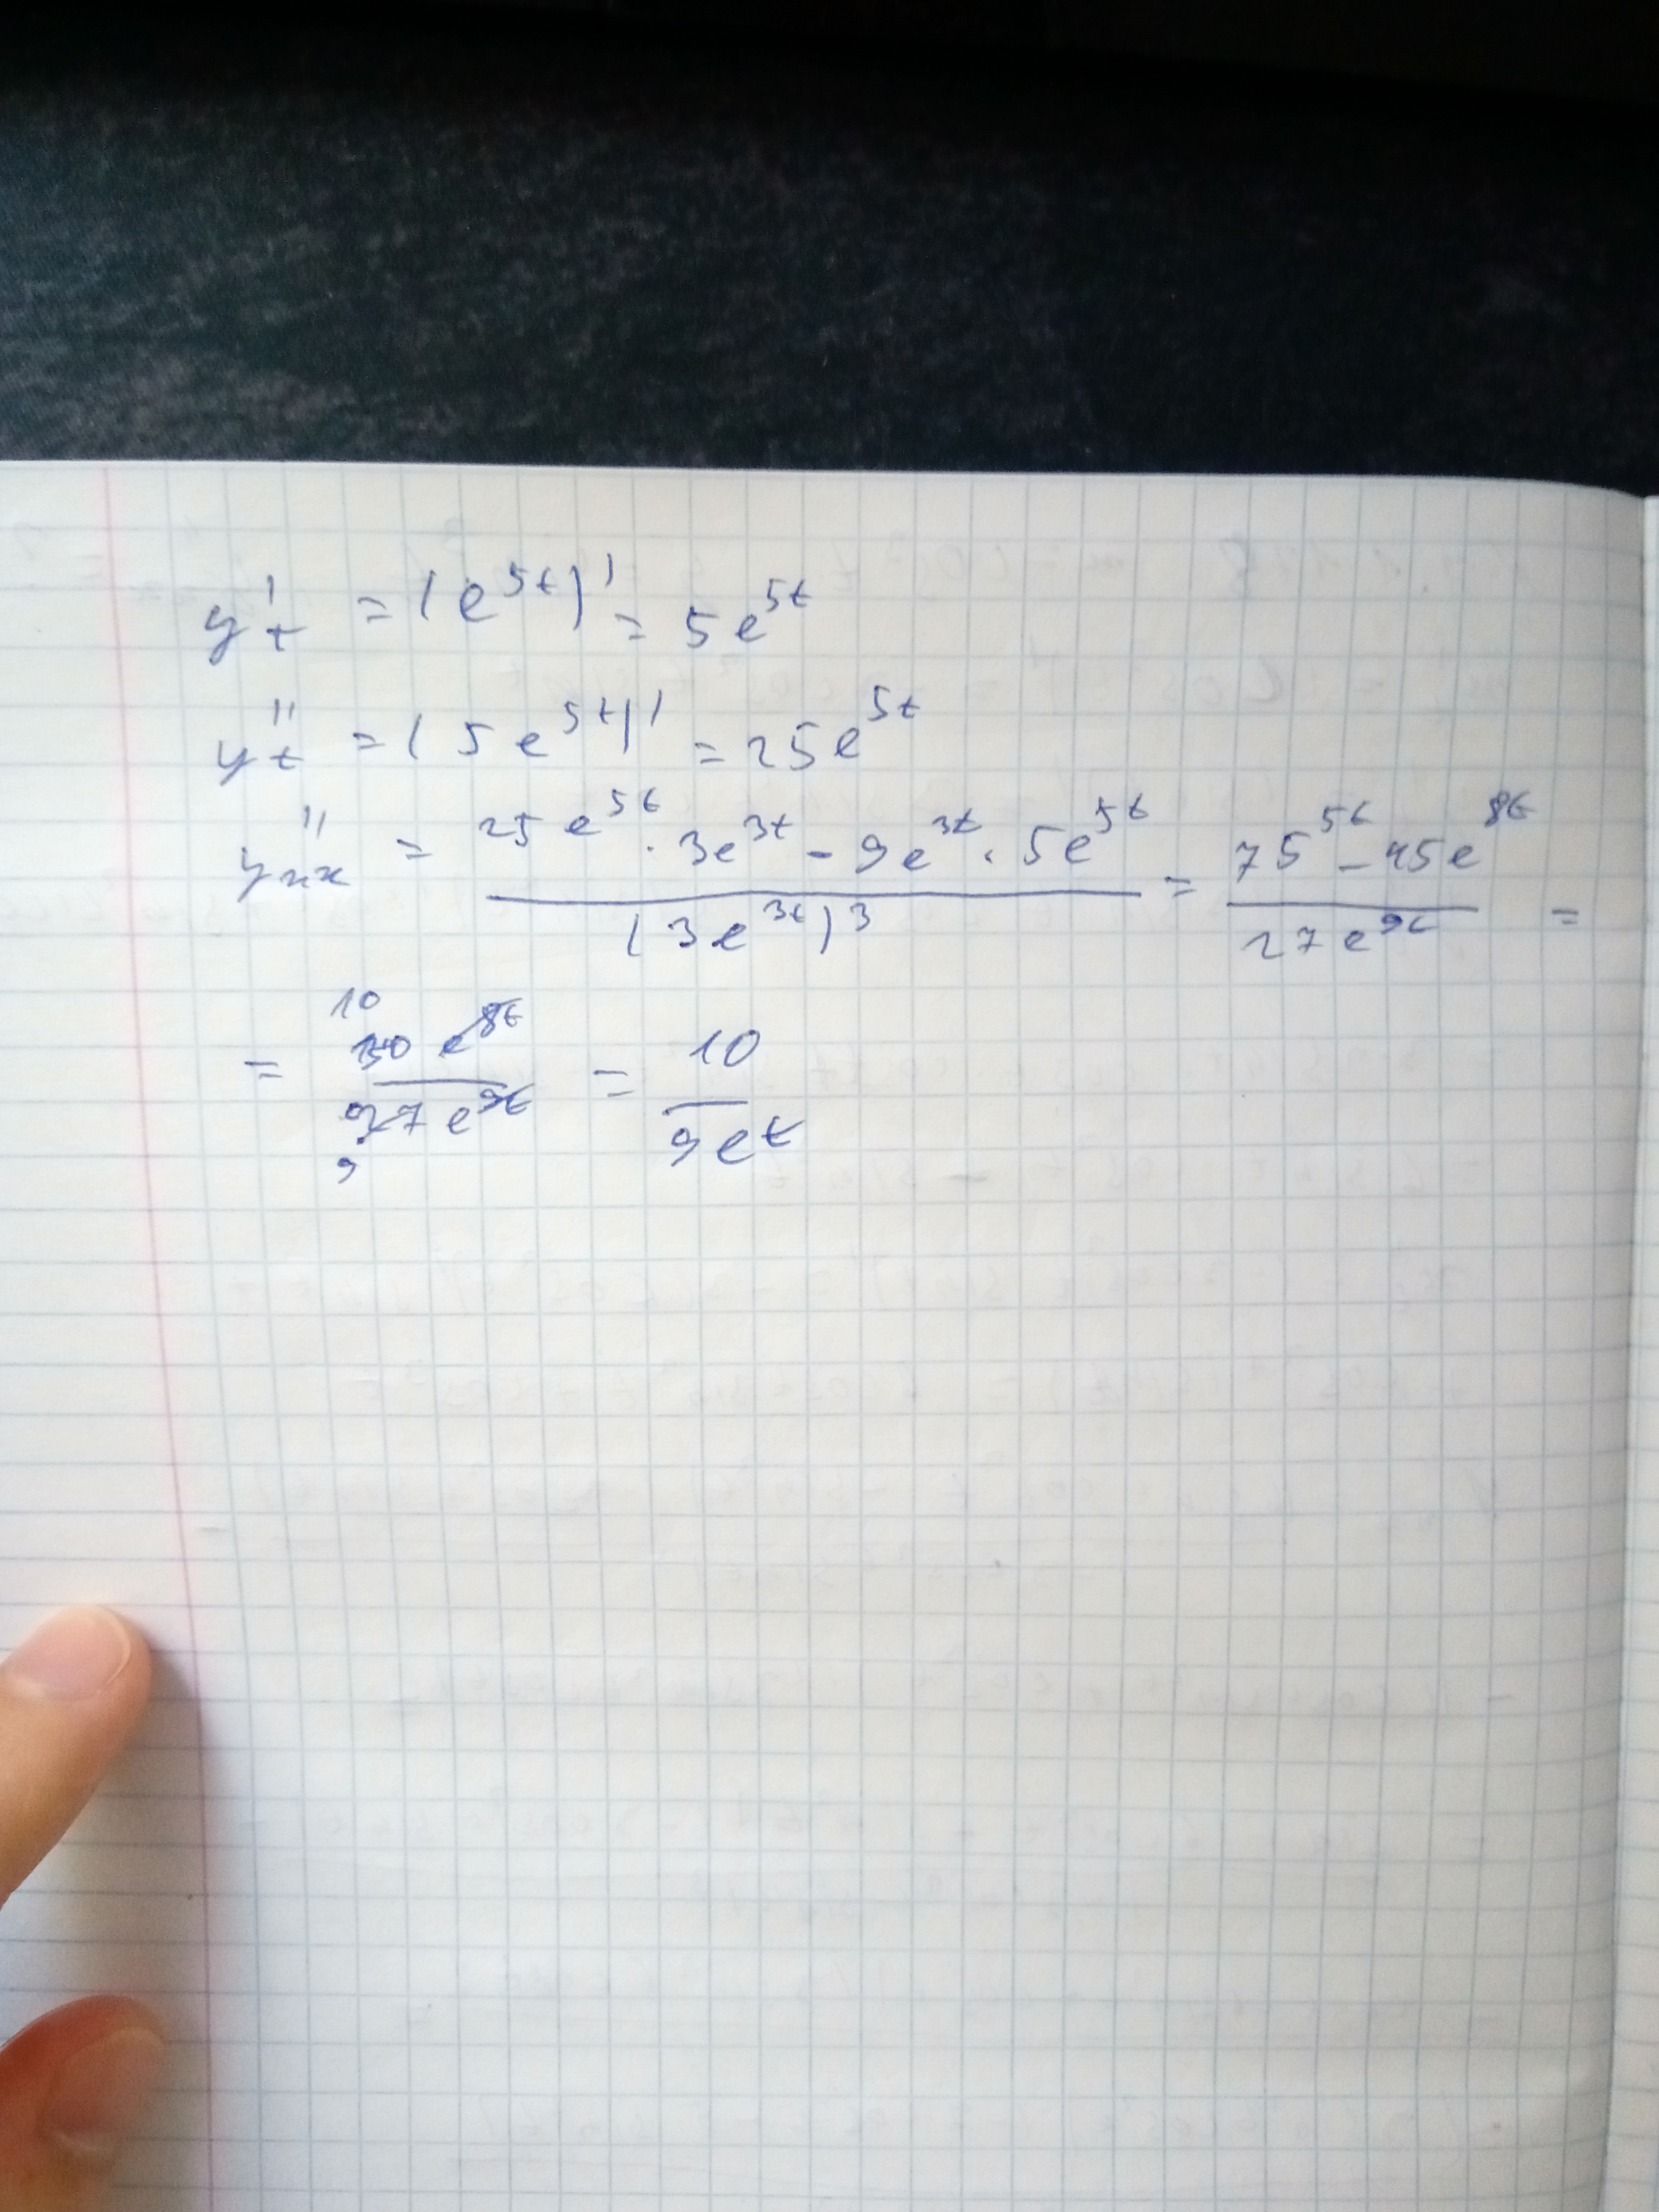 y't = (e^5t)' = 5e^5t
y''t = (5e^5t)' = 25e^5t
y''xx = (25e^5t · 3e^3t - 9e^3t · 5e^5t) / (3e^3t)^3 = (75^5t - 45e^8t) / (27e^9t) =
= 10 30e^8t / 27e^9t 9 = 10 / 9e^t